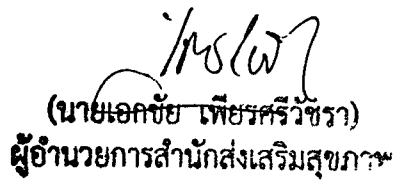 (นายเอกชัย เพียรศรีวัชรา)
ผู้อำนวยการสำนักส่งเสริมสุขภาพ